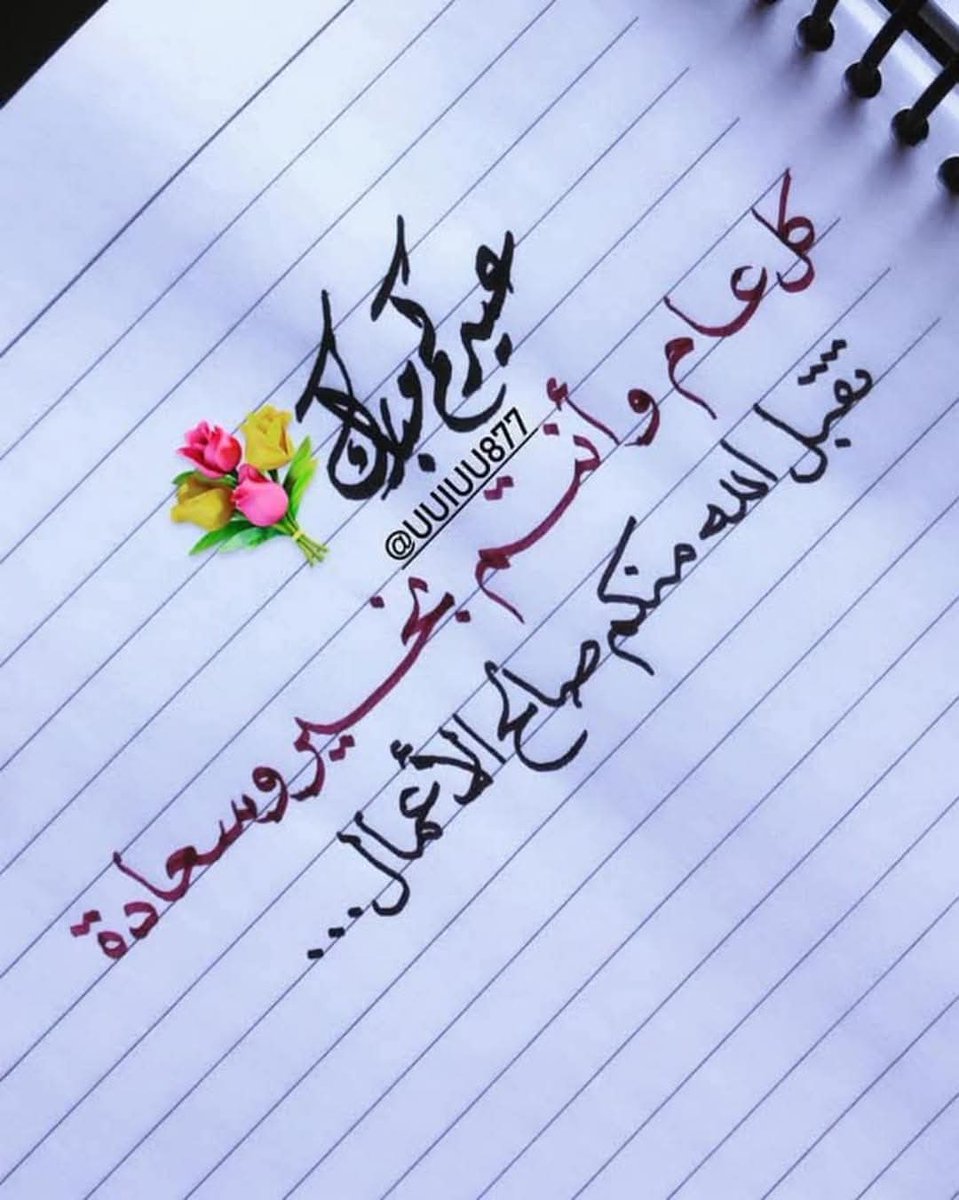 عيدكم مبارك
@UUIUU877
كل عام وأنتم بخير وسعادة
تقبل الله منكم صالح الأعمال...